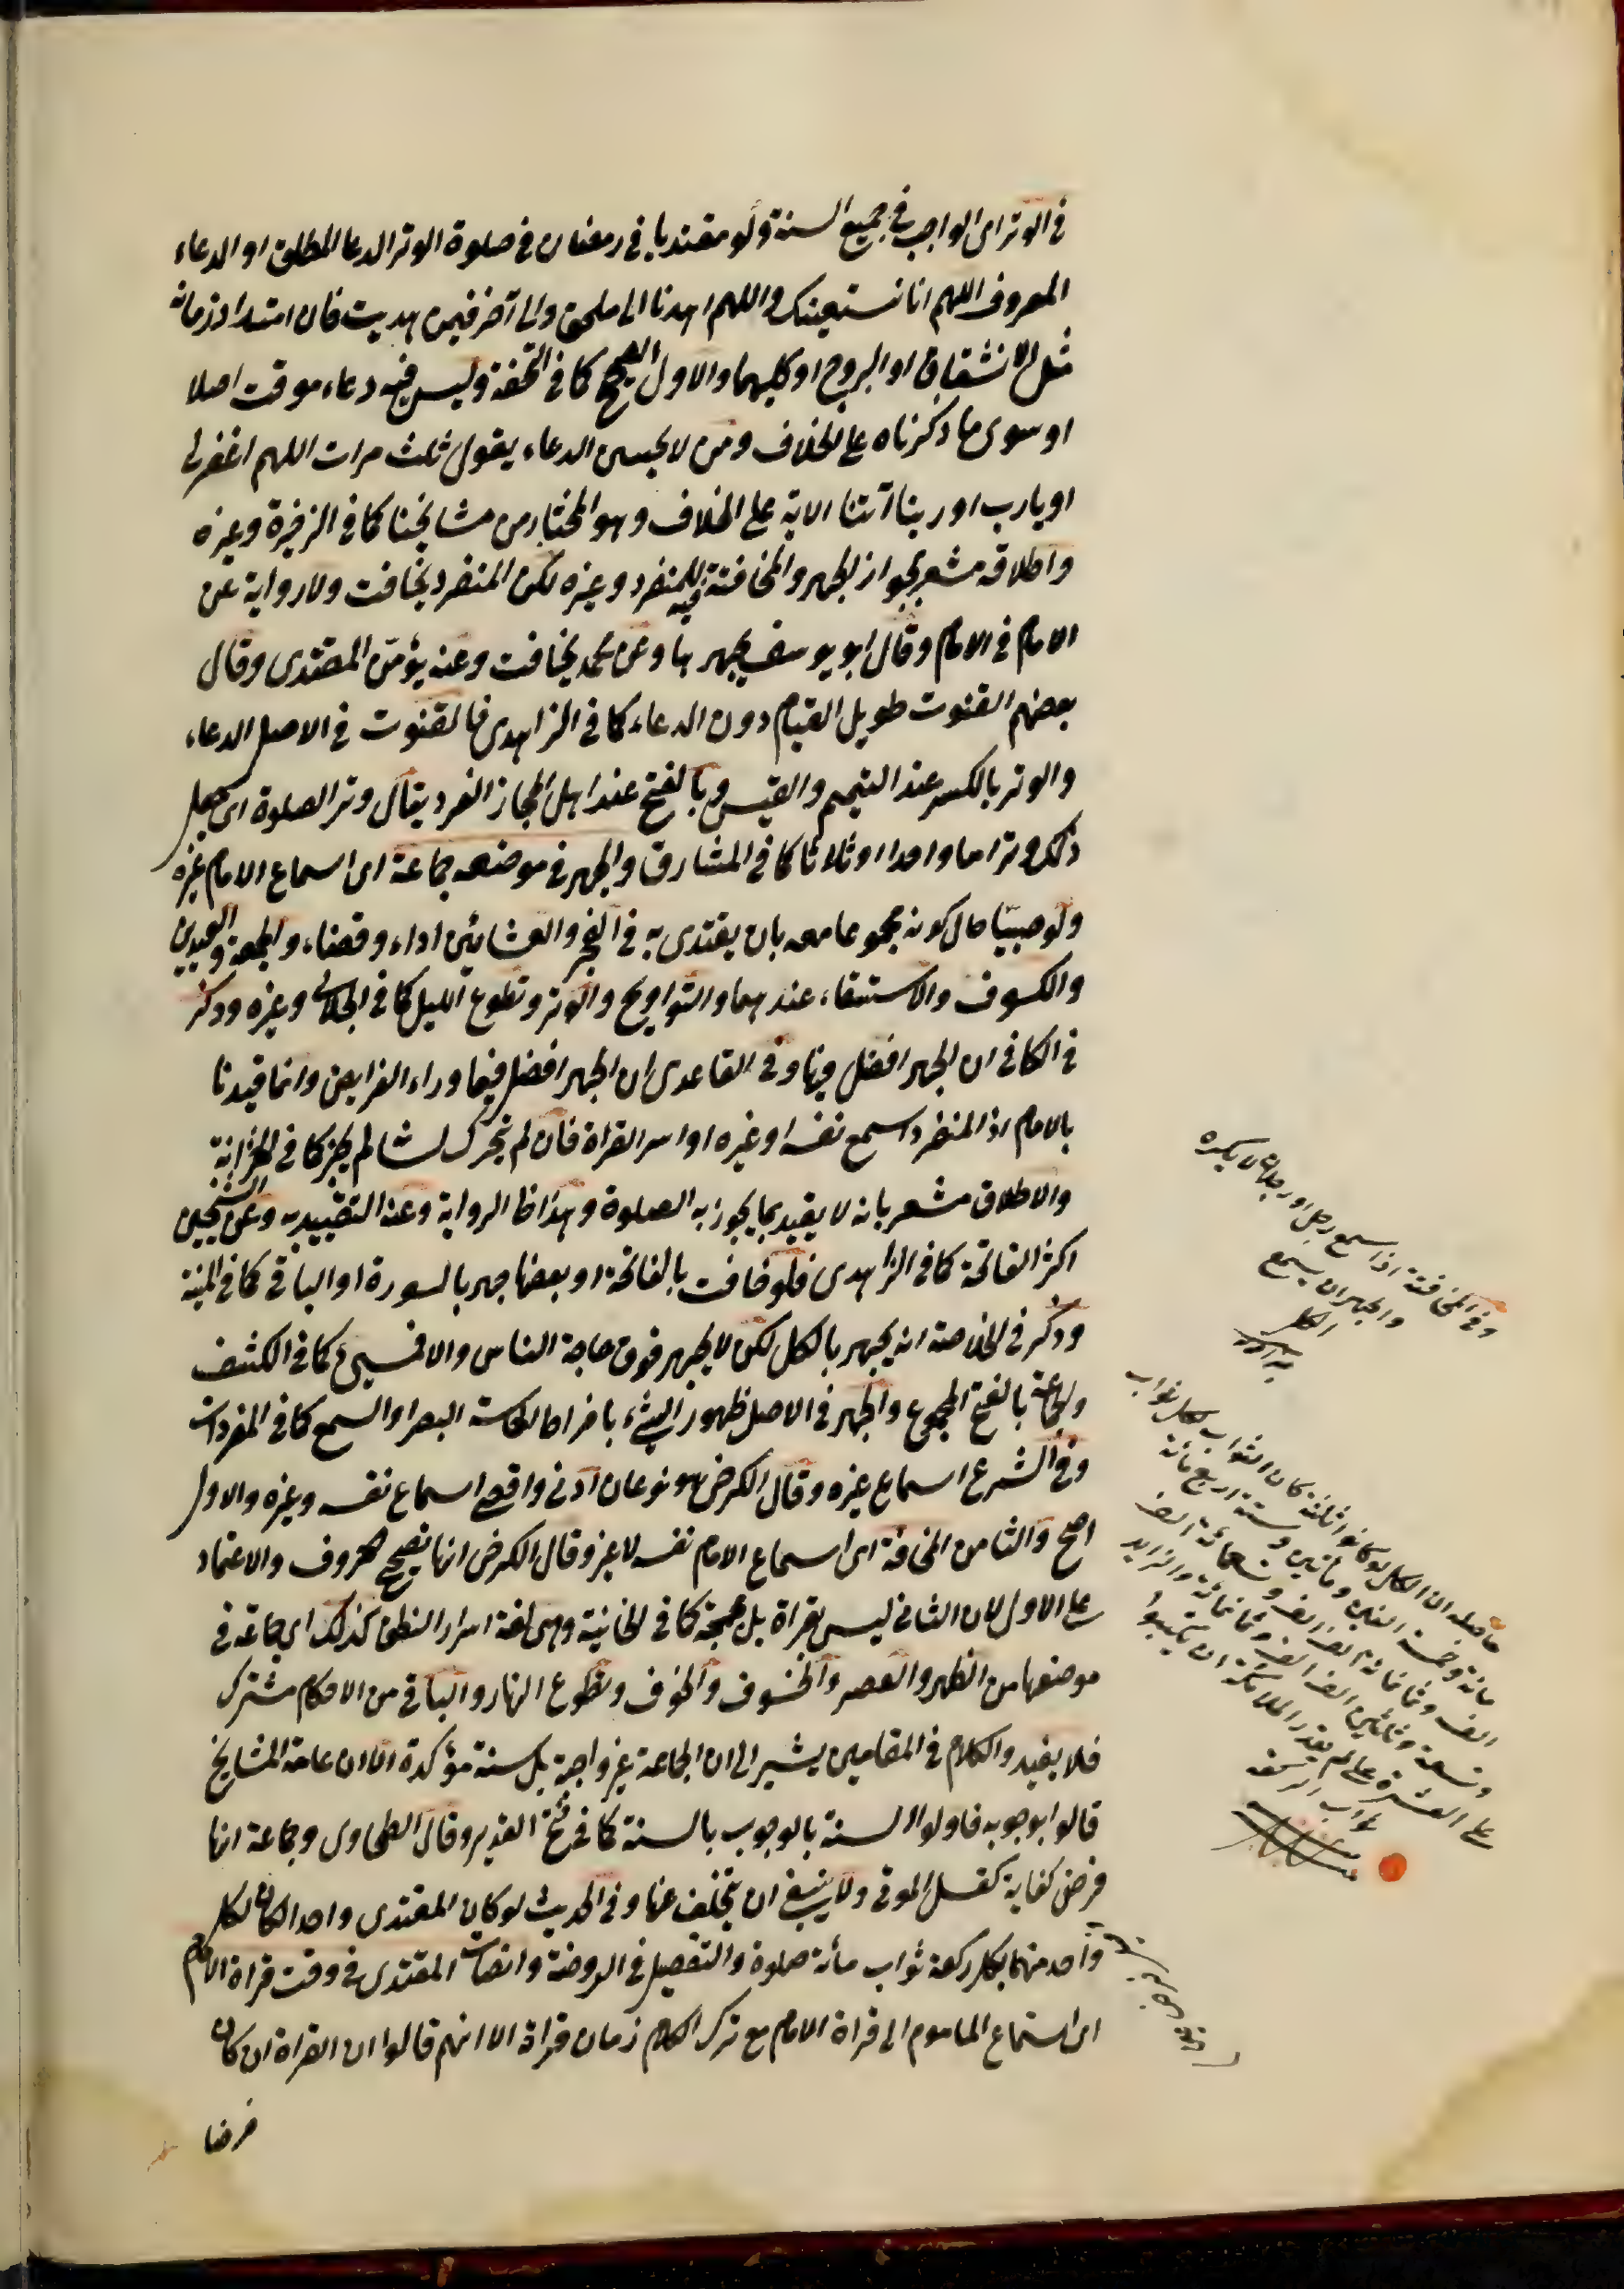 في الوتر اى الواجب في جميع السنة ولو مقتديا في رمضان في صلوة الوتر الدعا المطلق او الدعاء
المعروف اللهم انا نستعينك واللهم اهدنا الى ملحق والى آخر فيمن هديت فان امتداد زمانه
مثل الانشقاق او البروج او كليهما والاول الصحيح كما في التحفة وليس فيه دعاء موقت اصلا
او سوى ما ذكرناه على الخلاف ومن لا يحسن الدعاء يقول ثلث مرات اللهم اغفر لى
او يارب او ربنا آتنا الاية على الخلاف وهو المختار من مشايخنا كما في الذخيرة وغيره
واطلاقه مشعر بجواز الجهر والمخافتة فيه للمنفرد وغيره لكن المنفرد يخافت ولا رواية عن
الامام في الامام وقال ابو يوسف يجهر بها وعن محمد يخافت وعنه يؤمن المقتدى وقال
بعضهم القنوت طويل القيام دون الدعاء كما في الزاهدى فالقنوت في الاصل الدعاء
والوتر بالكسر عند التميم والقيس وبالفتح عند اهل الحجاز الفرد يقال وتر الصلوة اى جعل
ذلك وترا ما واحدا او ثلاثا كما في المشارق والجهر في موضعه جماعة اى اسماع الامام غيره
ولو صبيا حال كونه مجموعا معه بان يقتدى به في الفجر والعشائين اداء وقضاء والجمعة والعيدين
والكسوف والاستسقاء عندهما والتراويح والوتر وتطوع الليل كما في الجلابى وغيره وذكر
في الكافى ان الجهر افضل فيها وفي القاعدى ان الجهر افضل فيما وراء الفرايض وانما قيدنا
بالامام اذ المنفرد اسمع نفسه او غيره او اسر القراة فان لم يحرك لسانه لم يجز كما في الخزانة
والاطلاق مشعر بانه لا يقيد بما يجوز به الصلوة وهذا ظ الرواية وعنه التقييد به وعن الشيخين
اكثر الفاتحة كما في الزاهدى فلو خافت بالفاتحة او بعضها جهر بالسورة او الباقى كما في المنية
وذكر في الخلاصة انه يجهر بالكل لكن لا يجهر فوق حاجة الناس والا فمسيئ كما في الكشف
والجماعة بالفتح المجموع والجهر في الاصل ظهور الشئ بافراط لحاسة البصر او السمع كما في المفردات
وفي الشرع اسماع غيره وقال الكرخى هو نوعان ادنى واقصى اسماع نفسه وغيره والاول
اصح والثامن المخافتة اى اسماع الامام نفسه لا غير وقال الكرخى انها تصحيح الحروف والاعتماد
على الاول لان الثانى ليس بقراة بل مجمجة كما في الخانية وهى لغة اسرار النطق كذلك اى جماعة في
موضعها من الظهر والعصر والخسوف والخوف وتطوع النهار والباقى من الاحكام مشترك
فلا يفيد والكلام في المقامين يشير الى ان الجماعة غير واجبة بل سنة مؤكدة الا ان عامة المشايخ
قالوا بوجوبه فاولوا السنة بالوجوب بالسنة كما في فتح القدير وقال الطحاوى وجماعة انها
فرض كفاية كغسل الموتى ولا ينبغى ان يتخلف عنها وفي الحديث لو كان المقتدى واحدا كان لكل
واحد منهما بكل ركعة ثواب مائة صلوة والتفصيل في الروضة وانصات المقتدى في وقت قراة الامام
اى استماع الماموم الى قراة الامام مع ترك الكلام زمان قراة الا انهم قالوا ان القراة ان كان
فرضا
وفي المخافتة اذا سمع رجل او رجلان لا يكره
والجهر ان يسمع
الكل
حاصله ان الكل لو كانوا ثلثة كان الثواب لكل ثواب
مائة وخمسة الفين ومأتين وستة اربع مائة
الف وثمانمائة الف الف وتسعمائة الف
وتسعة وثلثين الف الف وثمانمائة والزايد
على العشرة على لم يقدر الملائكة ان يكتبوا
ثواب الركعة